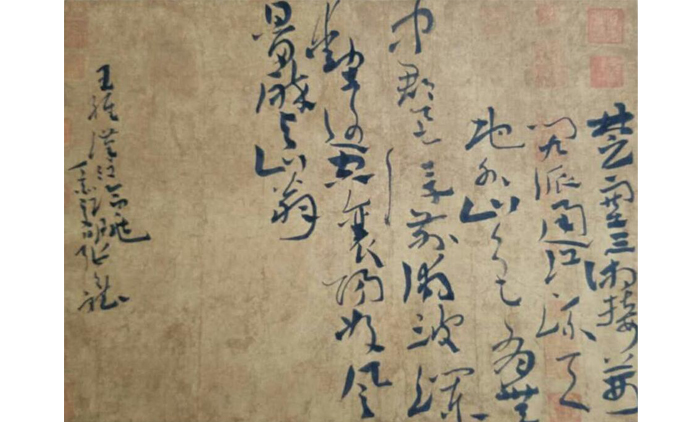 楚塞三湘接荊
門九派通江流天
地外山色有無
中郡邑浮前浦波瀾
動遠空襄陽好風
日留醉与山翁
王維漢江臨眺